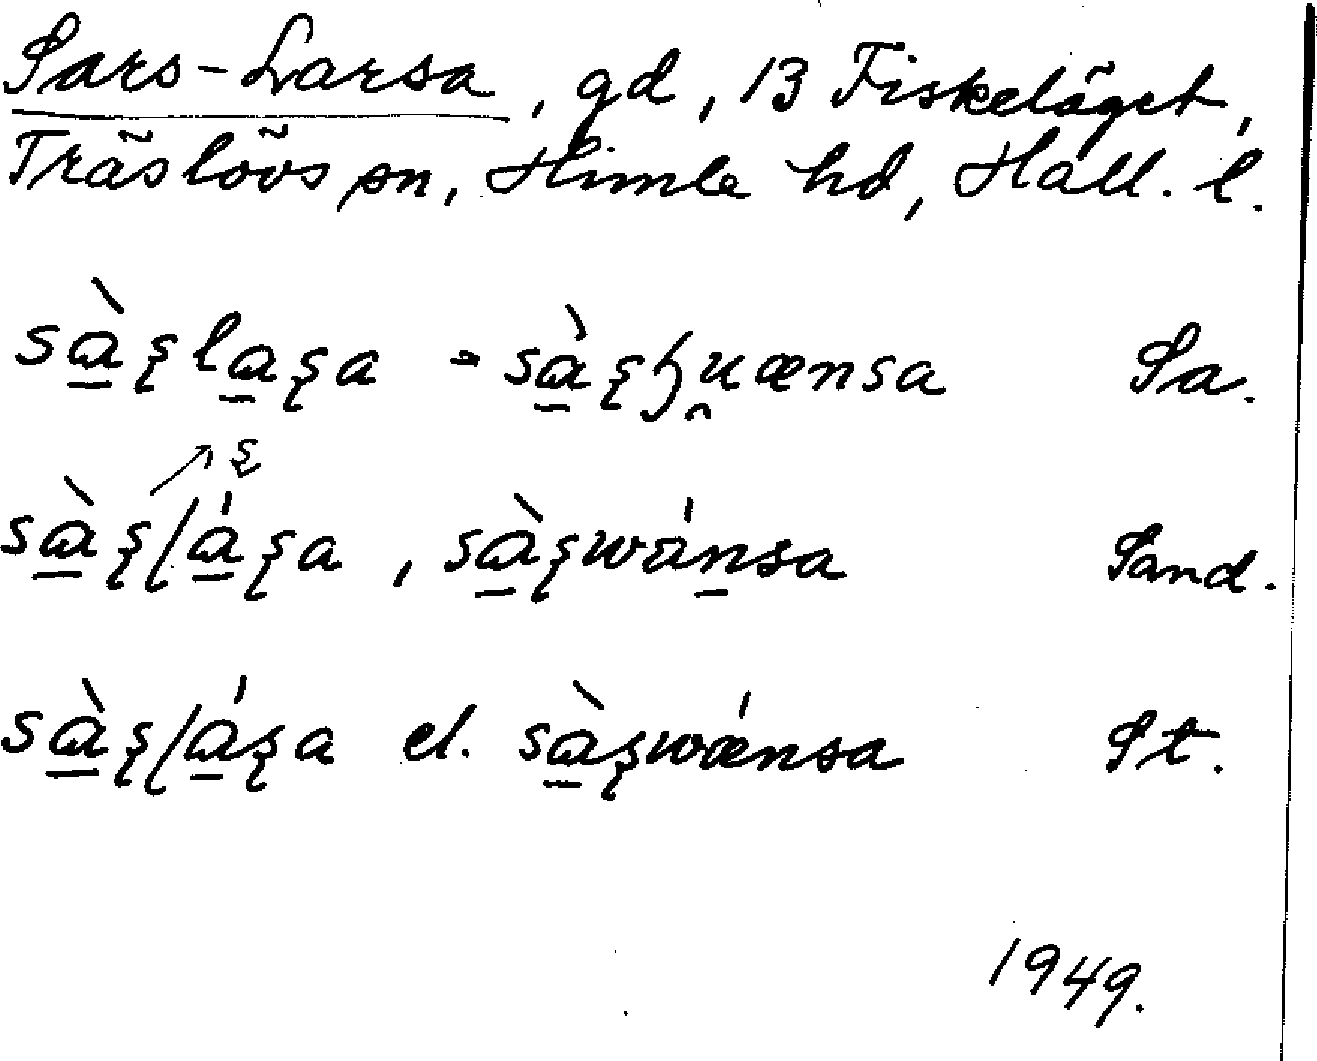 Sars-Larsa, gd, 13 Fiskeläget,
Träslövs sn, Himle hd, Hall. l.
sà̱ʂla̱ʂa = sà̱ʂɧu̯ænsa Sa.
↗ ʂ
sà̱ʂ/á̱ʂa, sà̱ʂwáṉsa Sand.
sà̱ʂ/á̱ʂa el. sà̱ʂwǽnsa St.
1949.